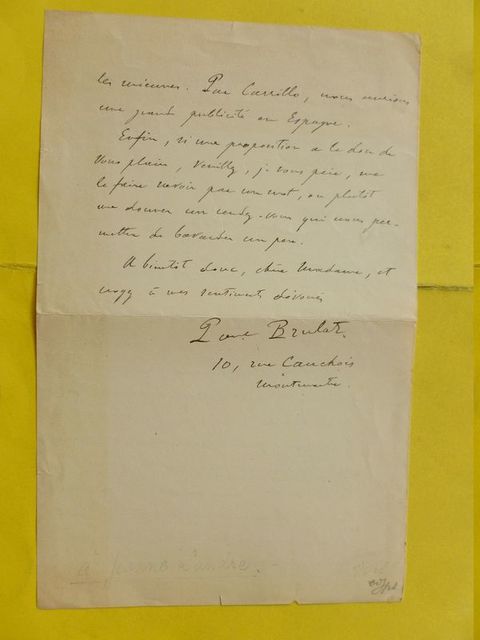 les miennes. Par Carrillo, nous aurions
une grande publicité en Espagne.
Enfin, si ma proposition a le don de
vous plaire, veuillez, je vous prie, me
le faire savoir par un mot, ou plutôt
me donner un rendez-vous qui nous per-
mettra de bavarder un peu.
A bientôt donc, chère Madame, et
croyez à mes sentiments dévoués
Paul Brulat.
10, rue Cauchois
Montmartre.
à Jeanne Landre.